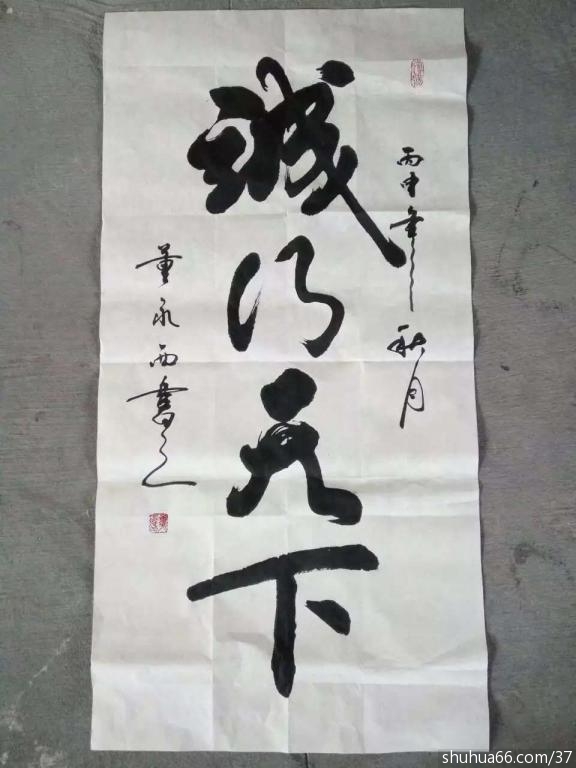 丙申年秋月
诚行天下
董永西书之
shuhua66.com/37